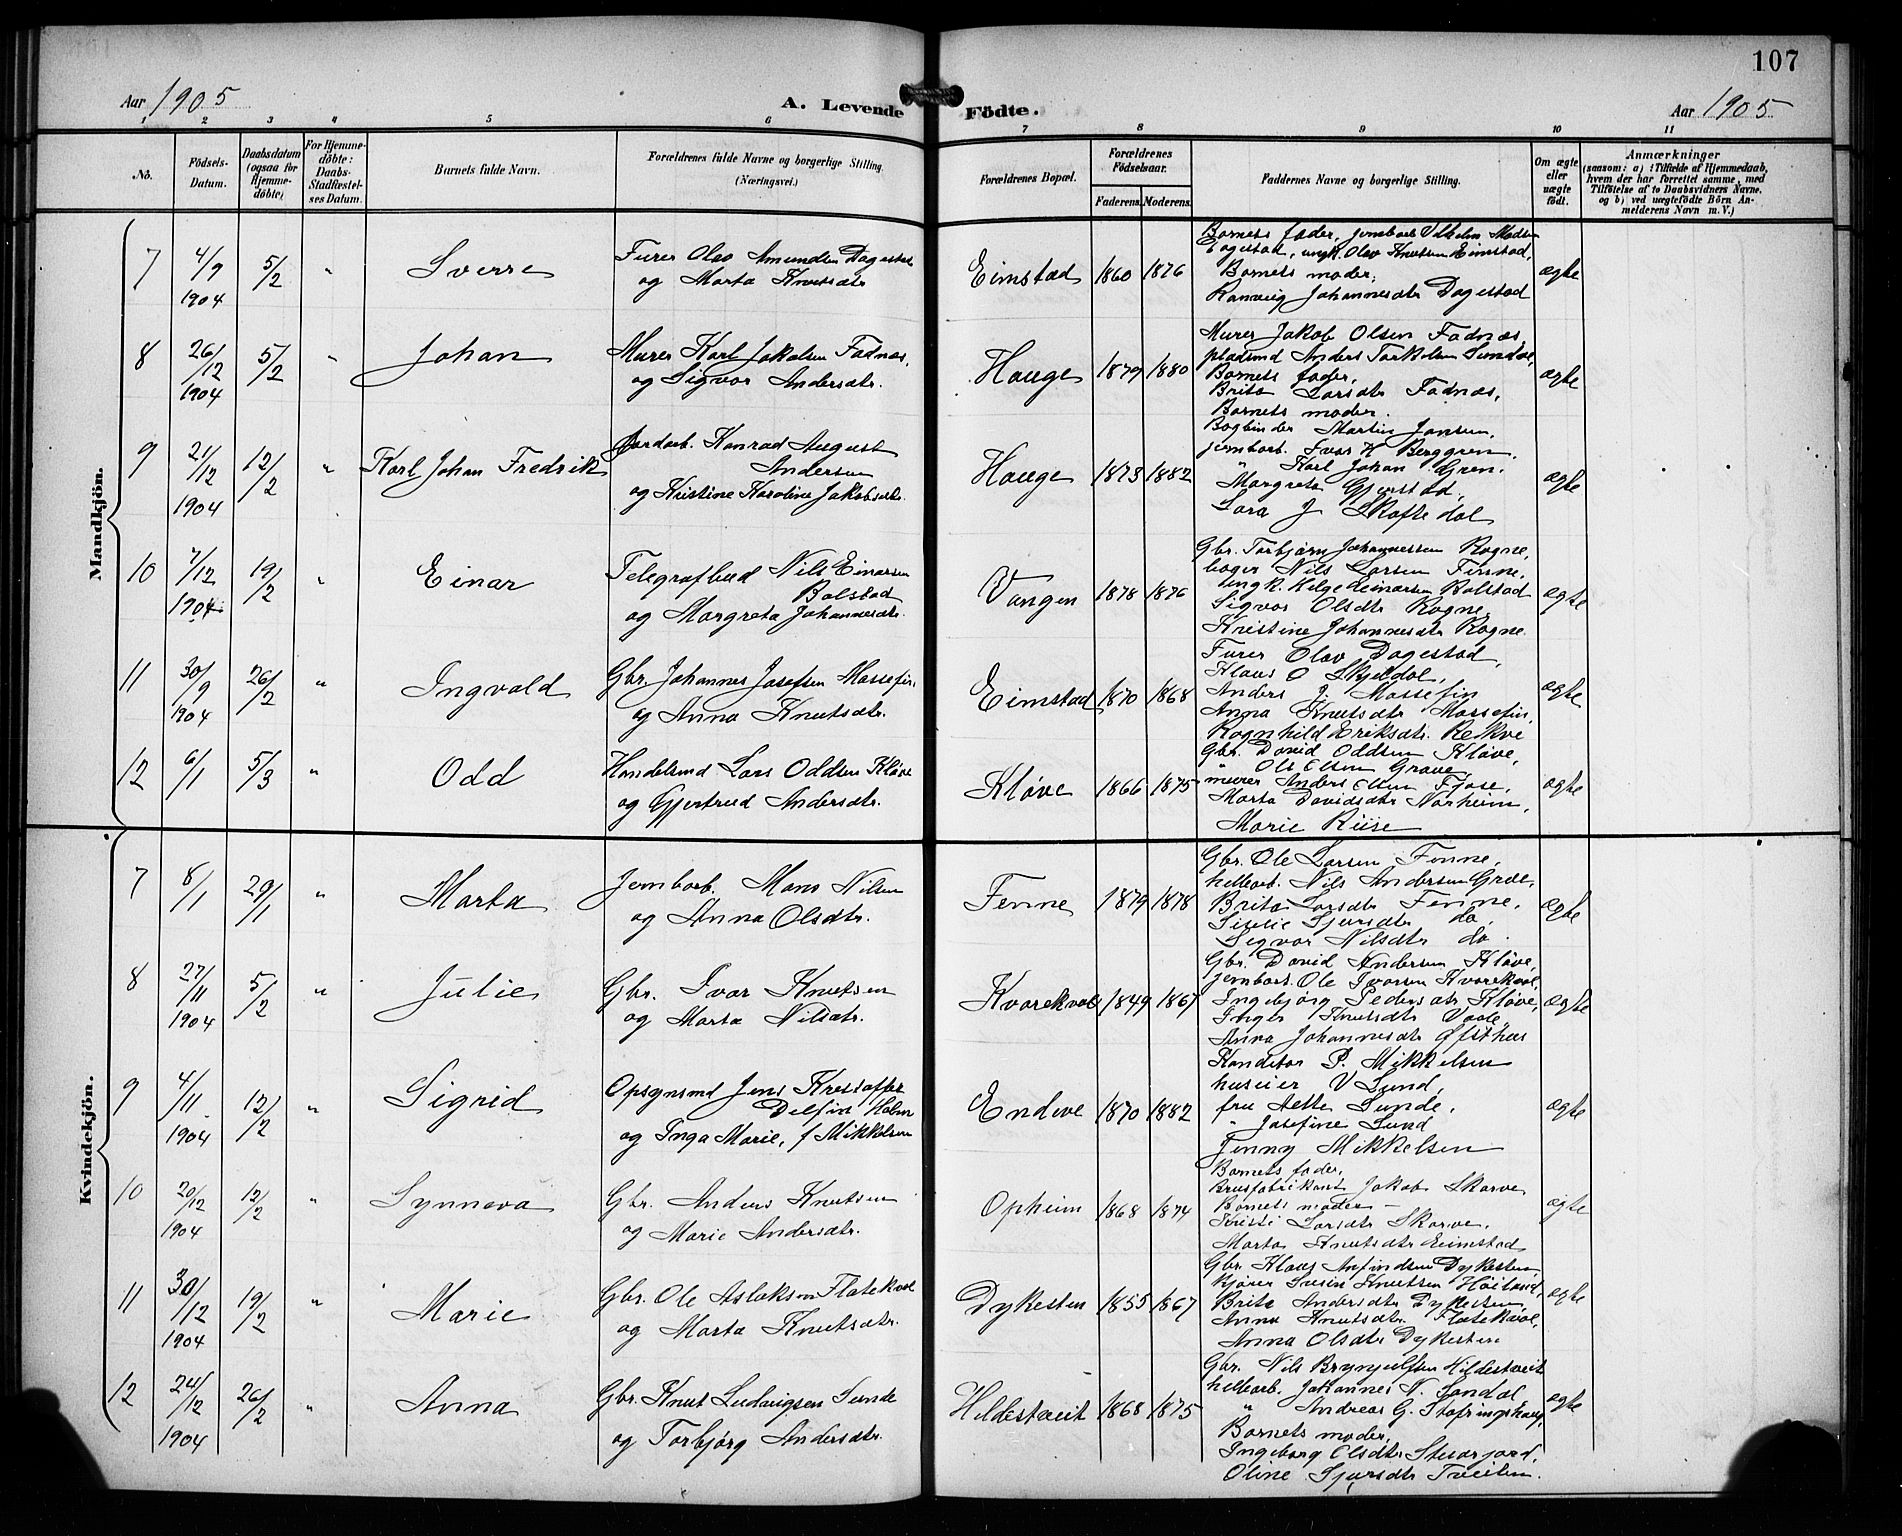 107
Aar 1905
A. Levende
Födte.
Aar 1905
1 2 3 4 5 6 7 8 9 10 11
No.
Födsels-Datum.
Daabsdatum (ogsaa for Hjemme-döbte)
For Hjemme-döbte: Daabs-Stadfæstel-ses Datum.
Barnets fulde Navn.
Forældrenes fulde Navne og borgerlige Stilling.
(Næringsvei.)
Forældrenes Bopæl.
Forældrenes Födselsaar.
Faderens. Moderens.
Faddernes Navne og borgerlige Stilling.
Om ægte eller uægte födt.
Anmærkninger
(saasom: a) i Tilfælde af Hjemmedaab,
hvem der har forrettet samme, med
Tilföielse af to Daabsvidners Navne,
og b) ved uægtefödte Börn An-
melderens Navn m. V.)
Mandkjön.
7 4/9 1904 5/2 " Sverre
Furer Olav Amundsen Dagestad
og Marta Knutsdtr
Eimstad 1860 1876
Barnets fader, jernbarb. Vilhelm Madsen
Dagestad, ungk. Olav Knutsen Eimstad,
Barnets moder,
Ranveig Johannesdtr Dagestad
ægte
8 26/12 1904 5/2 " Johan
Murer Karl Jakobsen Fadnæs
og Sigvor Andersdtr.
Hauge 1879 1880
Murer Jakob Olsen Fadnæs,
pladsmd Anders Torkelsen Sundve,
Barnets fader,
Brita Larsdtr Fadnæs,
Barnets moder.
ægte
9 21/12 1904 12/2 " Karl Johan Fredrik
Jordarb. Konrad August
Andersen
og Kristine Karoline Jakobsdtr.
Hauge 1873 1882
Bogbinder Martin Jansen,
jernbarb. Ivar K Berggren,
" Karl Johan Gren.
Margreta Gjerstad,
Lara J Skaftedal
ægte
10 7/12 1904 19/2 " Einar
Telegrafbud Nils Einarsen
Bolstad
og Margreta Johannesdtr.
Vangen 1878 1876
Gbr. Torbjørn Johannessen Rogne,
bager Nils Larsen Finne,
ungk. Helge Einarsen Bolstad
Sigvor Olsdtr Rogne
Kristine Johannesdtr Rogne.
ægte
11 30/9 1904 26/2 " Ingvald
Gbr. Johannes Josefsen Massefin,
og Anna Knutsdtr.
Eimstad 1870 1868
Furer Olav Dagestad,
Klaus O Skjeldal,
Anders J. Massefin
Anna Knutsdtr Massefin,
Ragnhild Eriksdtr. Rekve
ægte
12 6/1 5/3 " Odd
Handelsmd Lars Oddsen Kløve
og Gjertrud Andersdtr.
Kløve 1866 1875
Gbr. David Oddsen Kløve,
" Ole Olsen Grove
murer Anders Olsen Fjose,
Marta Davidsdtr Norheim,
Marie Riise
ægte
Kvindekjön.
7 8/1 29/1 " Marta
Jernbarb. Mons Nilsen
og Anna Olsdtr.
Finne 1879 1878
Gbr. Ole Larsen Finne,
hellearb. Nils Andersen Græe,
Brita Larsdtr Finne,
Sigvor Nilsdtr do.
ægte
8 27/11 1904 5/2 " Julie
Gbr. Ivar Knutsen
og Marta Nilsdtr.
Kvarekval 1849 1867
Gbr. David Andersen Kløve,
jernbarb. Ole Ivarsen Kvarekval,
Ingebjørg Pedersdtr Kløve,
Inger Knutsdtr
Anna Johannesdtr Øfsthus
ægte
9 4/11 1904 12/2 " Sigrid
Opsynsmd Jens Kristoffer
Delfin Holm
og Inga Marie, f Mikkelsen
Endeve 1870 1882
Konditor P. Mikkelsen
huseier V Lund,
fru Sunde,
" Josefine Lund
Jenny Mikkelsen
ægte
10 20/12 1904 12/2 " Synneva
Gbr. Anders Knutsen
og Marie Andersdtr.
Opheim 1868 1874
Barnets fader,
Brusfabrikant Jakob Skorve
Barnets moder
Kristi Larsdtr Skorve,
Marta Knutsdtr Eimstad
ægte
11 30/12 1904 19/2 " Marie
Gbr. Ole Aslaksen Flatekval
og Marta Knutsdtr.
Dykesten 1855 1867
Gbr. Klaus Arfindsen Dykesten
Knutsen
Brita Andersdtr Dykesten,
Anna Knutsdtr Flatekval,
Anna Olsdtr Dykesten
ægte
12 24/12 1904 26/2 " Anna
Gbr. Knut Ludvigsen Sunde
og Torbjørg Andersdtr.
Hildestveit 1868 1875
Gbr. Nils Brynjulfsen Hildestveit
hellearb. Johannes N. Sandal
" Andreas G.
Barnets moder,
Ingeborg Olsdtr
Oline Sjursdtr Tveiten.
ægte